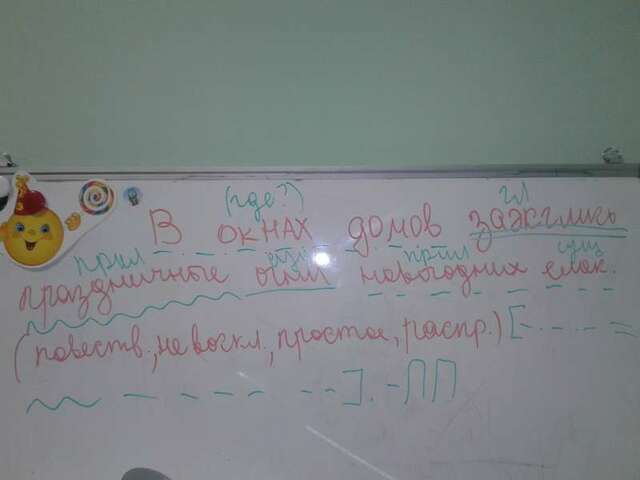 (где?) гл
В окнах домов зажглись
прил сущ прил сущ
праздничные огни новогодних ёлок.
(повеств., невоскл., простое, распр.) [
]. - ПП